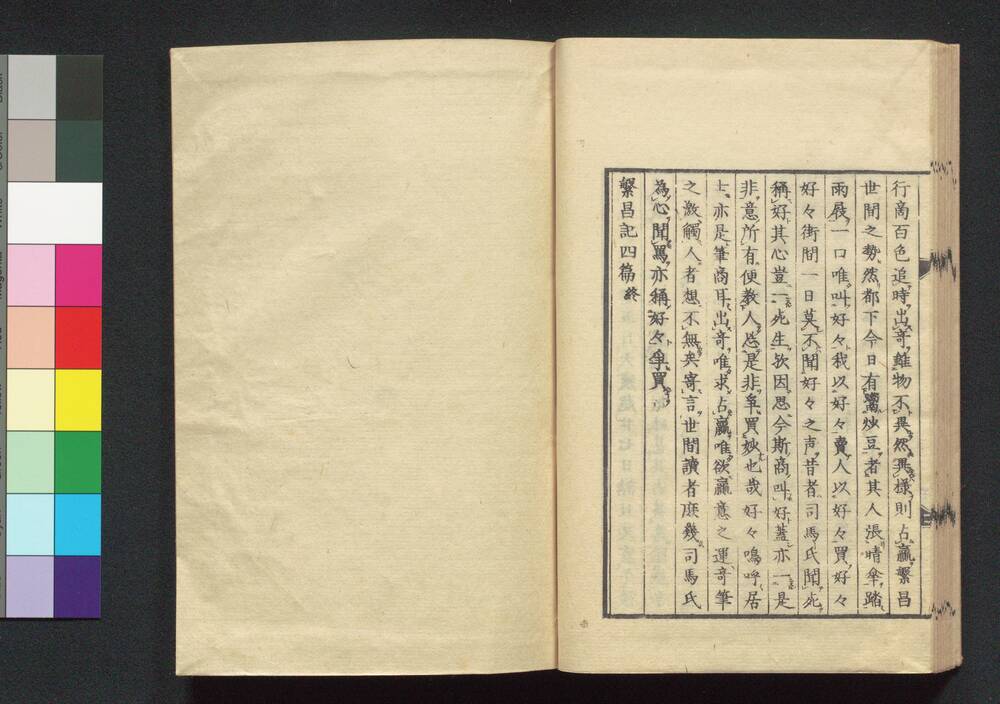 行商百色追時出奇離物不異然異樣則占贏繁昌
世間之勢然都下今日有鬻炒豆者其人張晴傘踏
雨屐一口唯叫好々我以好々賣人以好々買好々
好々街間一日莫不聞好々之声昔者司馬氏聞死
稱好其心豈一死生欤因思今斯商叫好蓋亦一是
非意所有便教人忘是非争買妙也哉好々嗚呼居
士亦是筆商耳出奇唯求占贏唯欲贏意之運奇筆
之激觸人者想不無矣寄言世間讀者庶幾司馬氏
為心聞罵亦稱好々争買
繁昌記四篇終